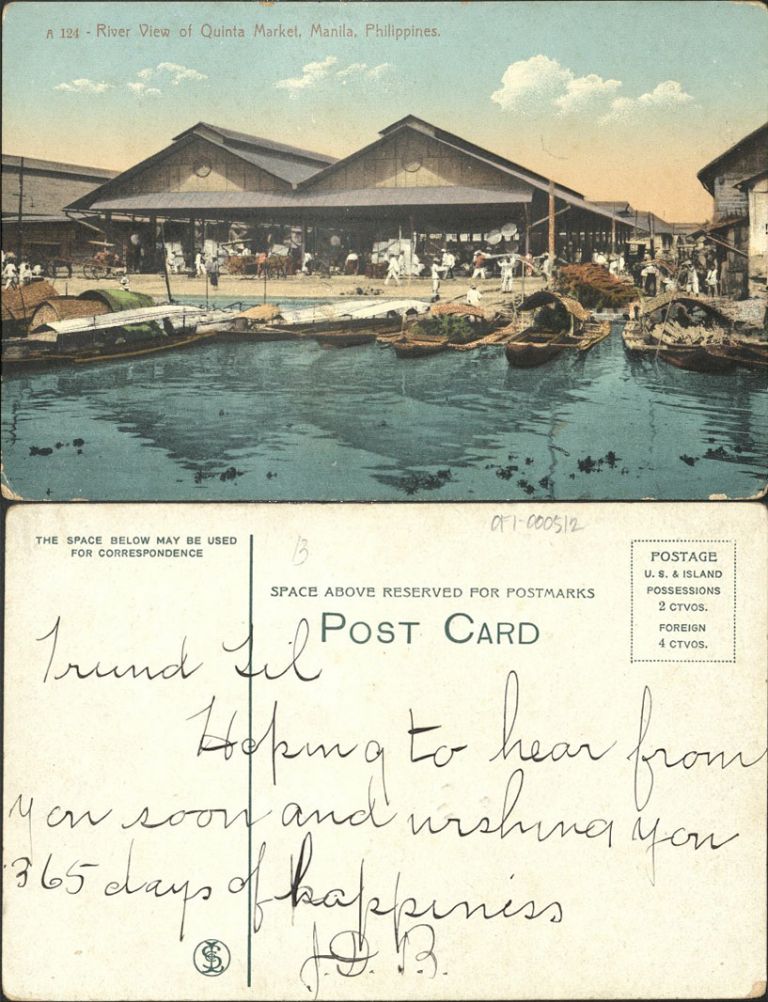 A 124 - River View of Quinta Market, Manila, Philippines.
OF1-000512
THE SPACE BELOW MAY BE USED
FOR CORRESPONDENCE
13
SPACE ABOVE RESERVED FOR POSTMARKS
POST CARD
POSTAGE
U. S. & ISLAND
POSSESSIONS
2 CTVOS.
FOREIGN
4 CTVOS.
Friend Lil
Hoping to hear from
you soon and wishing you
365 days of happiness
J. D. B.